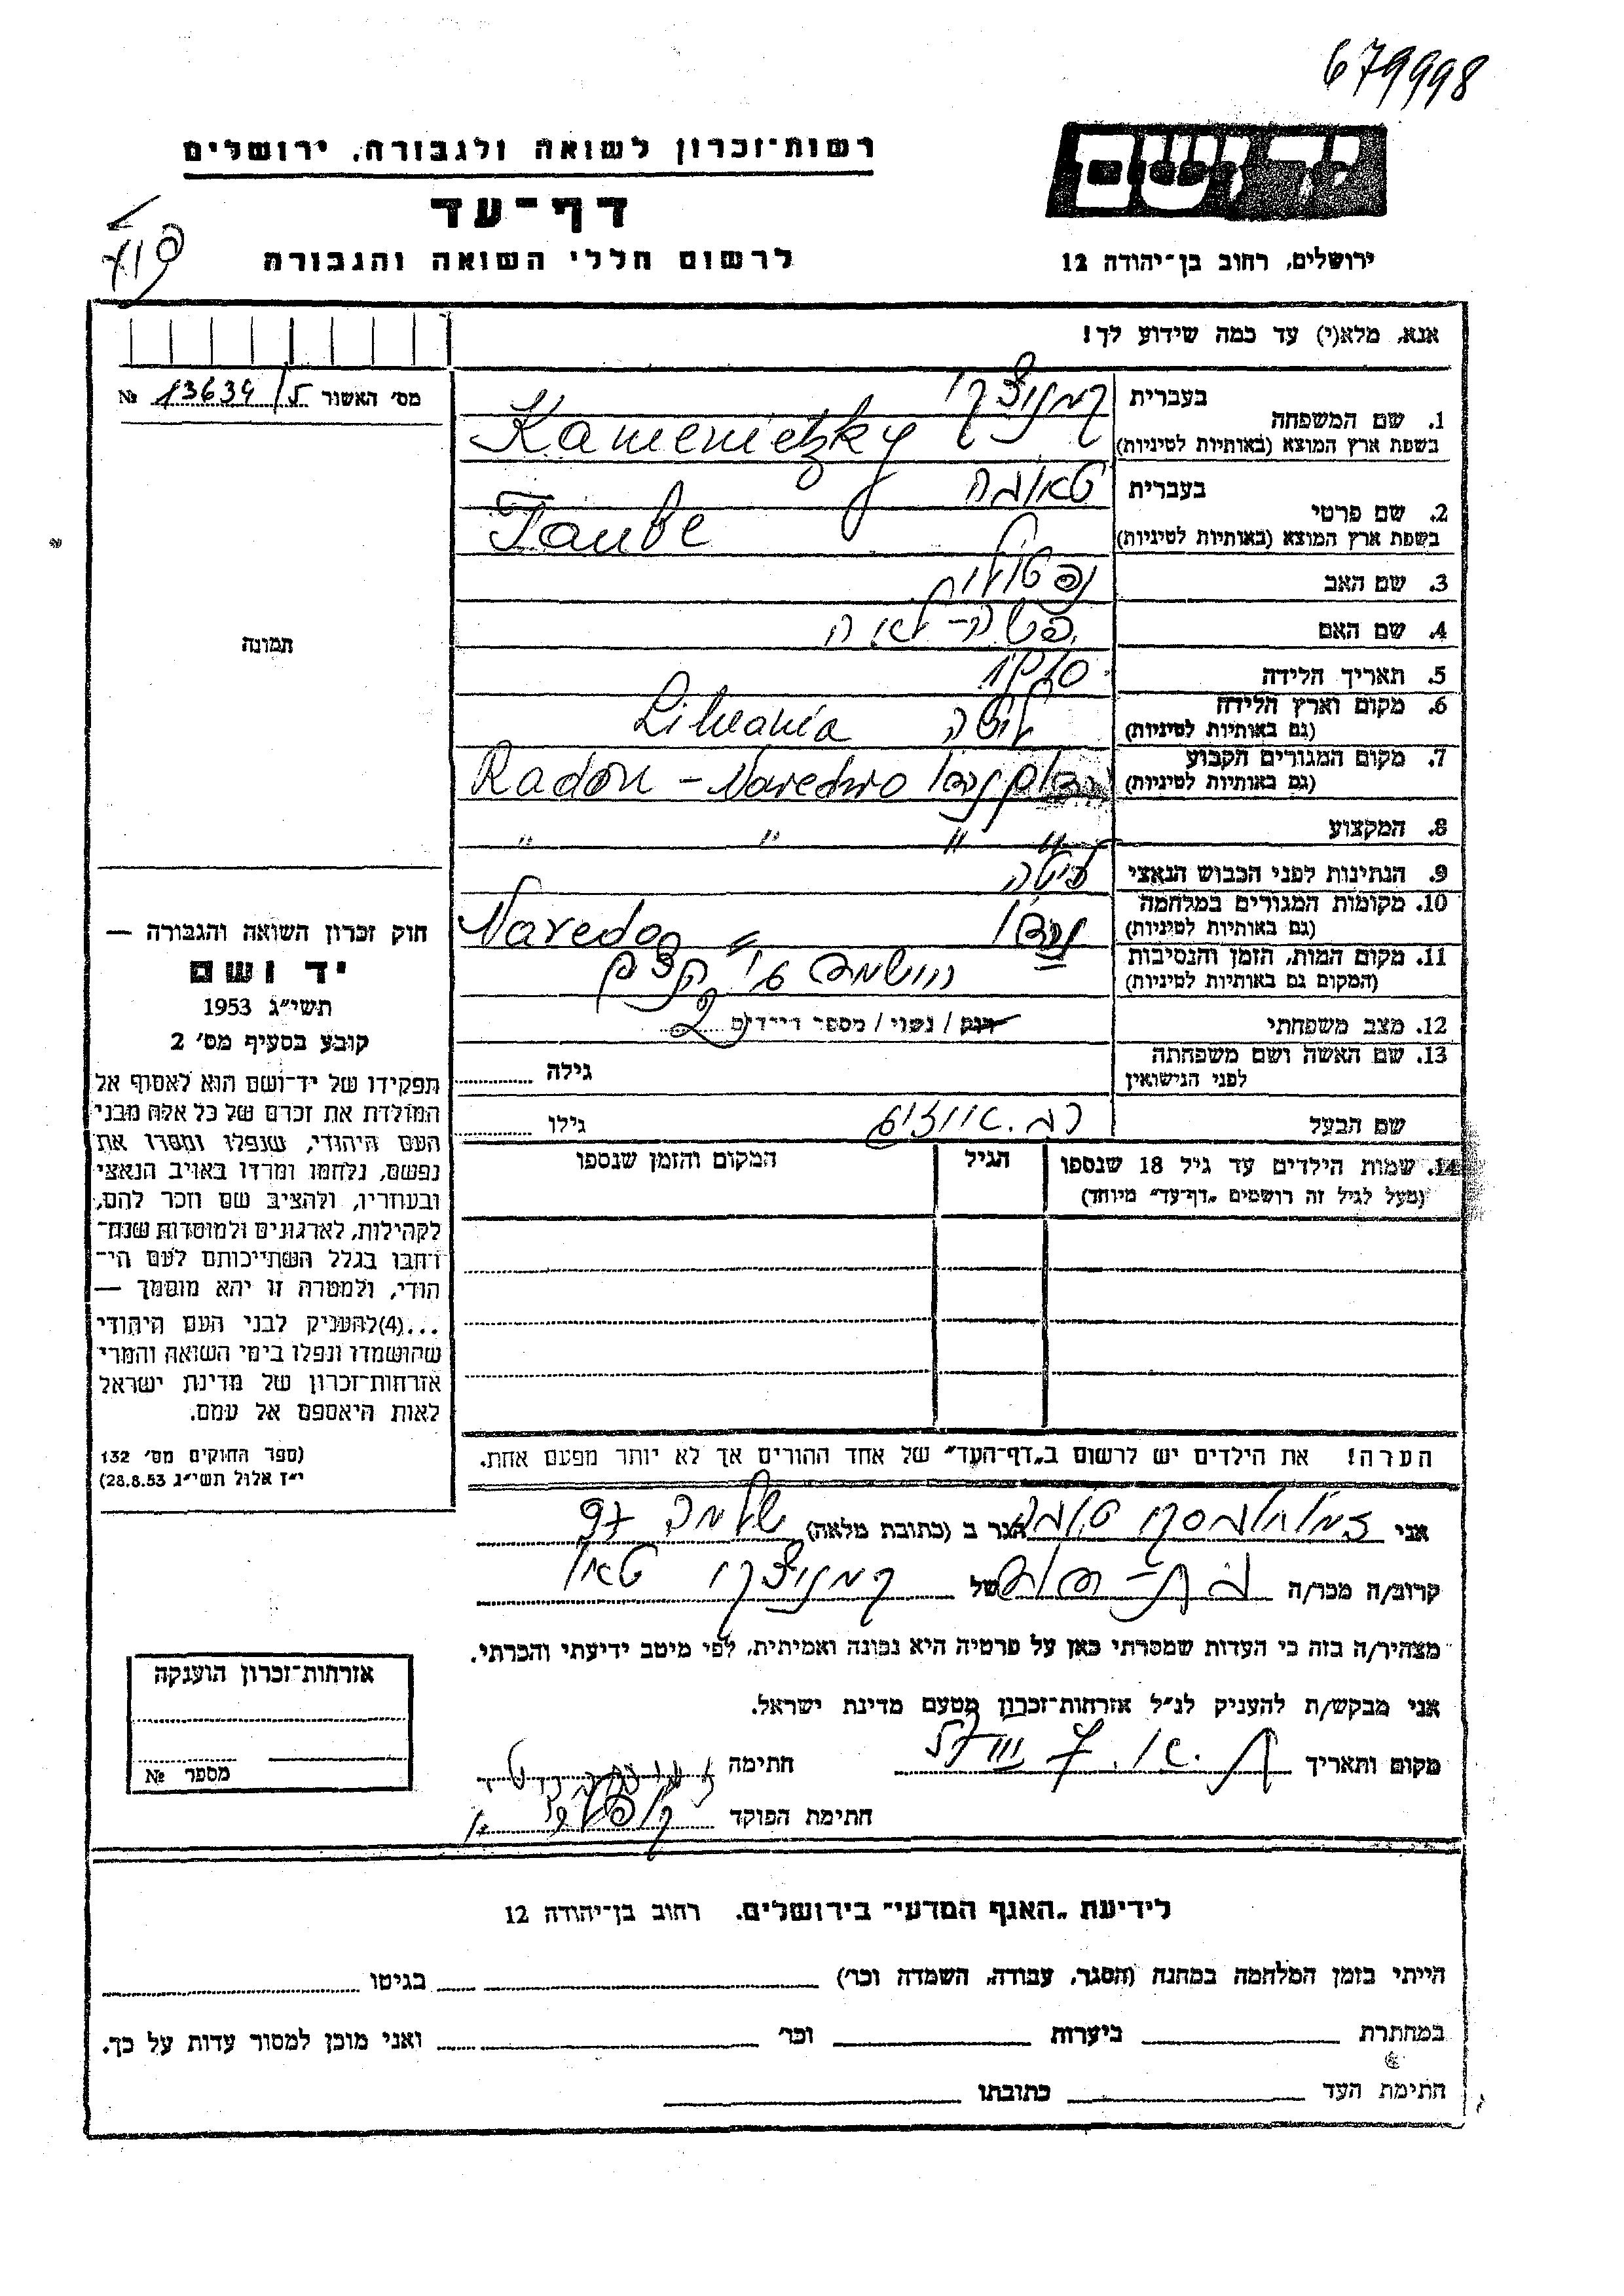 679998
רשות־זכרון לשואה ולגבורה, ירושלים
יד ושם
דף־עד
לרשום חללי השואה והגבורה
ירושלים, רחוב בן־יהודה 12
אנא, מלא(י) עד כמה שידוע לך!
מס׳ האשור 13634/5 №
1. שם המשפחה
בעברית קמנוצקי
בשפת ארץ המוצא (באותיות לטיניות) Kamenietzky
2. שם פרטי
בעברית טאובה
בשפת ארץ המוצא (באותיות לטיניות) Taube
3. שם האב נפטולי
4. שם האם פשה-לאה
5. תאריך הלידה
6. מקום וארץ הלידה
(גם באותיות לטיניות) ליטה Lituania
7. מקום המגורים הקבוע
(גם באותיות לטיניות) Radon - Naredno
8. המקצוע " " " "
9. הנתינות לפני הכבוש הנאצי ליטה
10. מקומות המגורים במלחמה
(גם באותיות לטיניות) Naredo
11. מקום המות, הזמן והנסיבות
(המקום גם באותיות לטיניות) הושמדה
12. מצב משפחתי רווק / נשוי / מספר הילדים 2
13. שם האשה ושם משפחתה
לפני הנישואין גילה
שם הבעל גילו
14. שמות הילדים עד גיל 18 שנספו
(מעל לגיל זה רושמים „דף־עד״ מיוחד)
הגיל
המקום והזמן שנספו
תמונה
חוק זכרון השואה והגבורה —
יד ושם
תשי״ג 1953
קובע בסעיף מס׳ 2
תפקידו של יד־ושם הוא לאסוף אל
המולדת את זכרם של כל אלה מבני
העם היהודי, שנפלו ומסרו את
נפשם, נלחמו ומרדו באויב הנאצי
ובעוזריו, ולהציב שם וזכר להם,
לקהילות, לארגונים ולמוסדות שנח־
רבו בגלל השתייכותם לעם הי־
הודי, ולמטרה זו יהא מוסמך —
...(4)להעניק לבני העם היהודי
שהושמדו ונפלו בימי השואה והמרי
אזרחות־זכרון של מדינת ישראל
לאות היאספם אל עמם.
(ספר החוקים מס׳ 132
י״ז אלול תשי״ג 28.8.53)
הערה! את הילדים יש לרשום ב„דף־העד״ של אחד ההורים אך לא יותר מפעם אחת.
אני הגר ב (כתובת מלאה)
קרוב/ה מכר/ה של קמנוצקי
מצהיר/ה בזה כי העדות שמסרתי כאן על פרטיה היא נכונה ואמיתית, לפי מיטב ידיעתי והכרתי.
אני מבקש/ת להעניק לנ״ל אזרחות־זכרון מטעם מדינת ישראל.
מקום ותאריך חתימה
חתימת הפוקד
אזרחות־זכרון הוענקה
מספר №
לידיעת „האגף המדעי״ בירושלים. רחוב בן־יהודה 12
הייתי בזמן המלחמה במחנה (הסגר, עבודה, השמדה וכו׳) בגיטו
במחתרת ביערות וכו׳ ואני מוכן למסור עדות על כך.
חתימת העד כתובתו